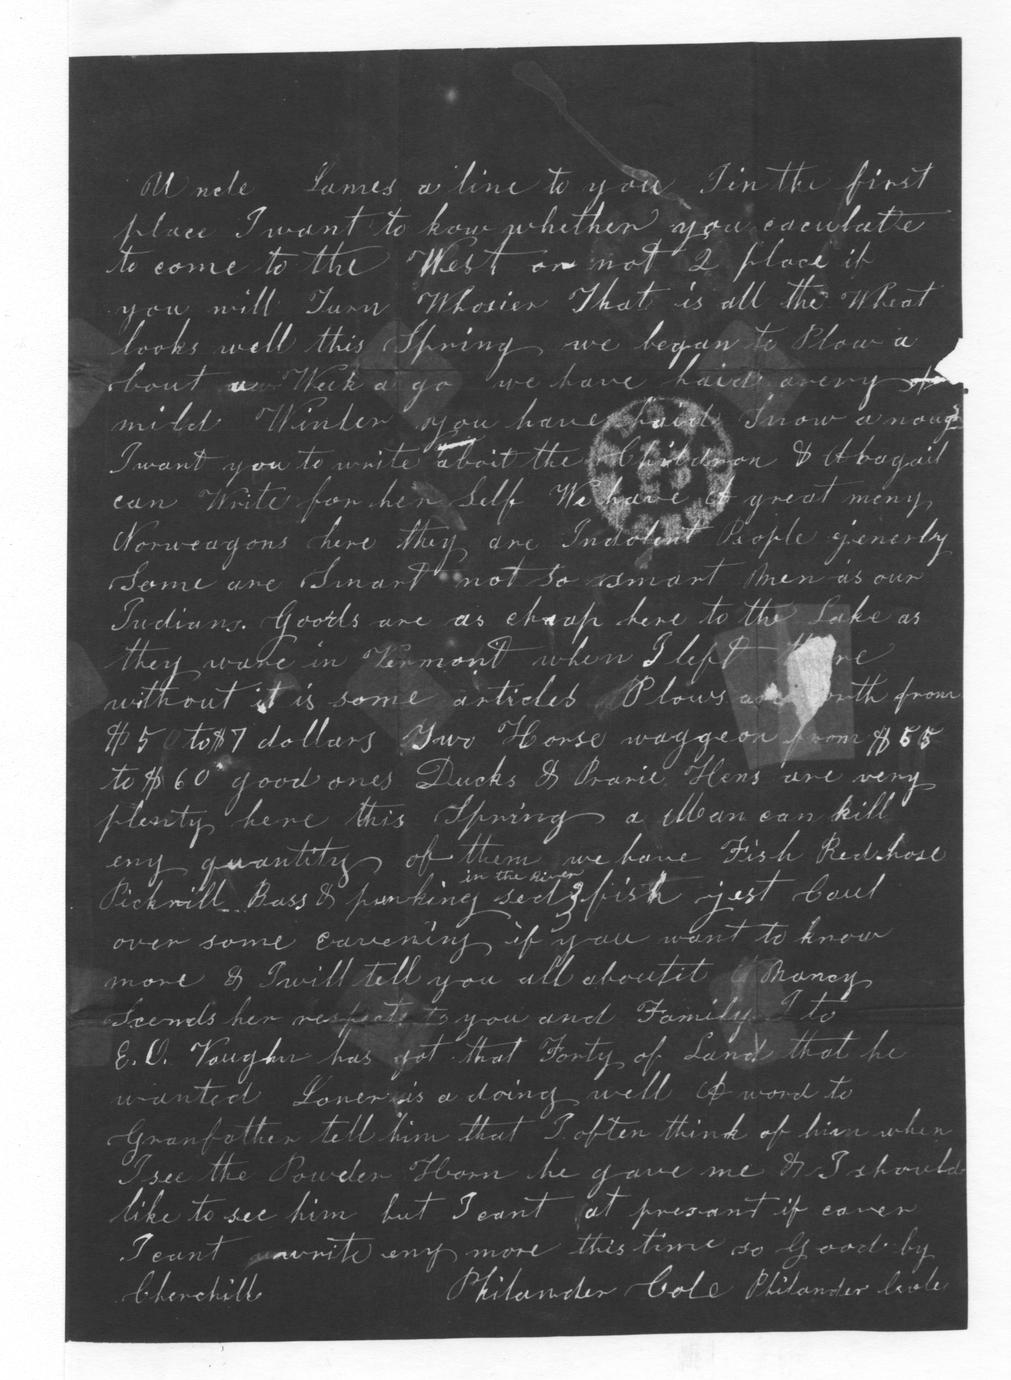 Uncle James a line to you I in the first
place I want to know whether you caculate
to come to the West or not 2 place if
you will Turn Whosier That is all the Wheat
looks well this Spring we began to Plow a
bout a Week a go we have haid avery
mild Winter you have haid Snow a noug
I want you to write aboit the Childron & Abagail
can Write for her Self We have a great meny
Norweagons here they are Indolent People jenerly
Some are Smart not So smart Men as our
Indians. Goods are as cheap here to the Lake as
they ware in Vermont when I left there
without it is some articles Plows are worth from
$5 to $7 dollars Two Horse waggeon from $55
to $60 good ones Ducks & Prarie Hens are very
plenty here this Spring a Man can kill
eny quantity of them we have Fish Redhose
in the River
Pickrill Bass & punking sed fish jest Caul
over some eavening if you want to know
more & I will tell you all aboutit Nancy
Scends her respects to you and Family I to
E. O. Vaughn has got that Forty of Land that he
wanted Loner is a doing well A word to
Granfather tell him that I often think of him when
I see the Powder Horn he gave me & I should
like to see him but I cant at presant if eaver
I cant write eny more this time so Good by
Cherchill Philander Cole Philander Cole